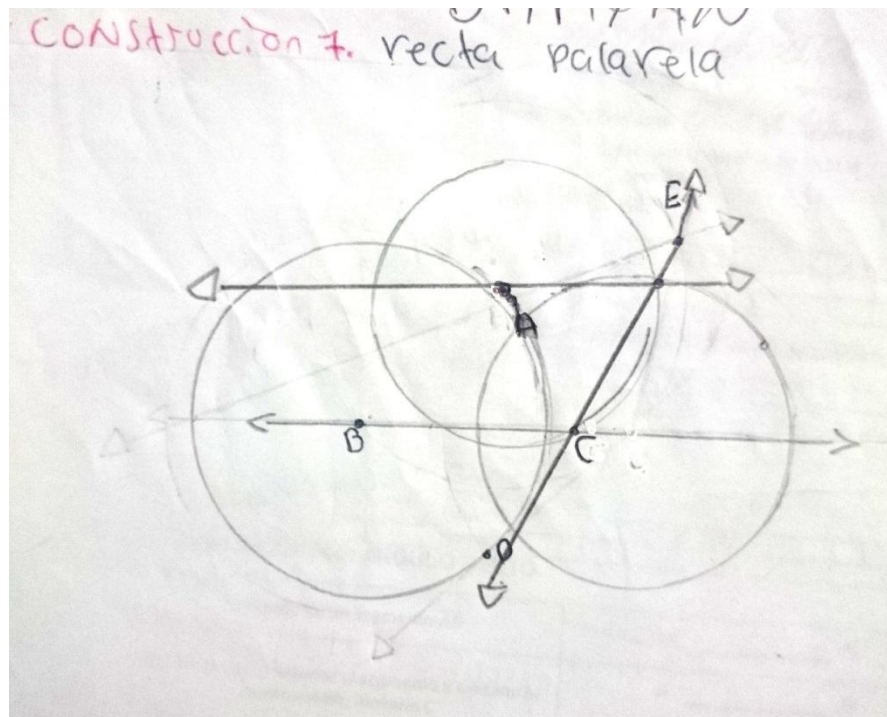 CONStrucciòn 7. recta palarela
E
A
B
C
D